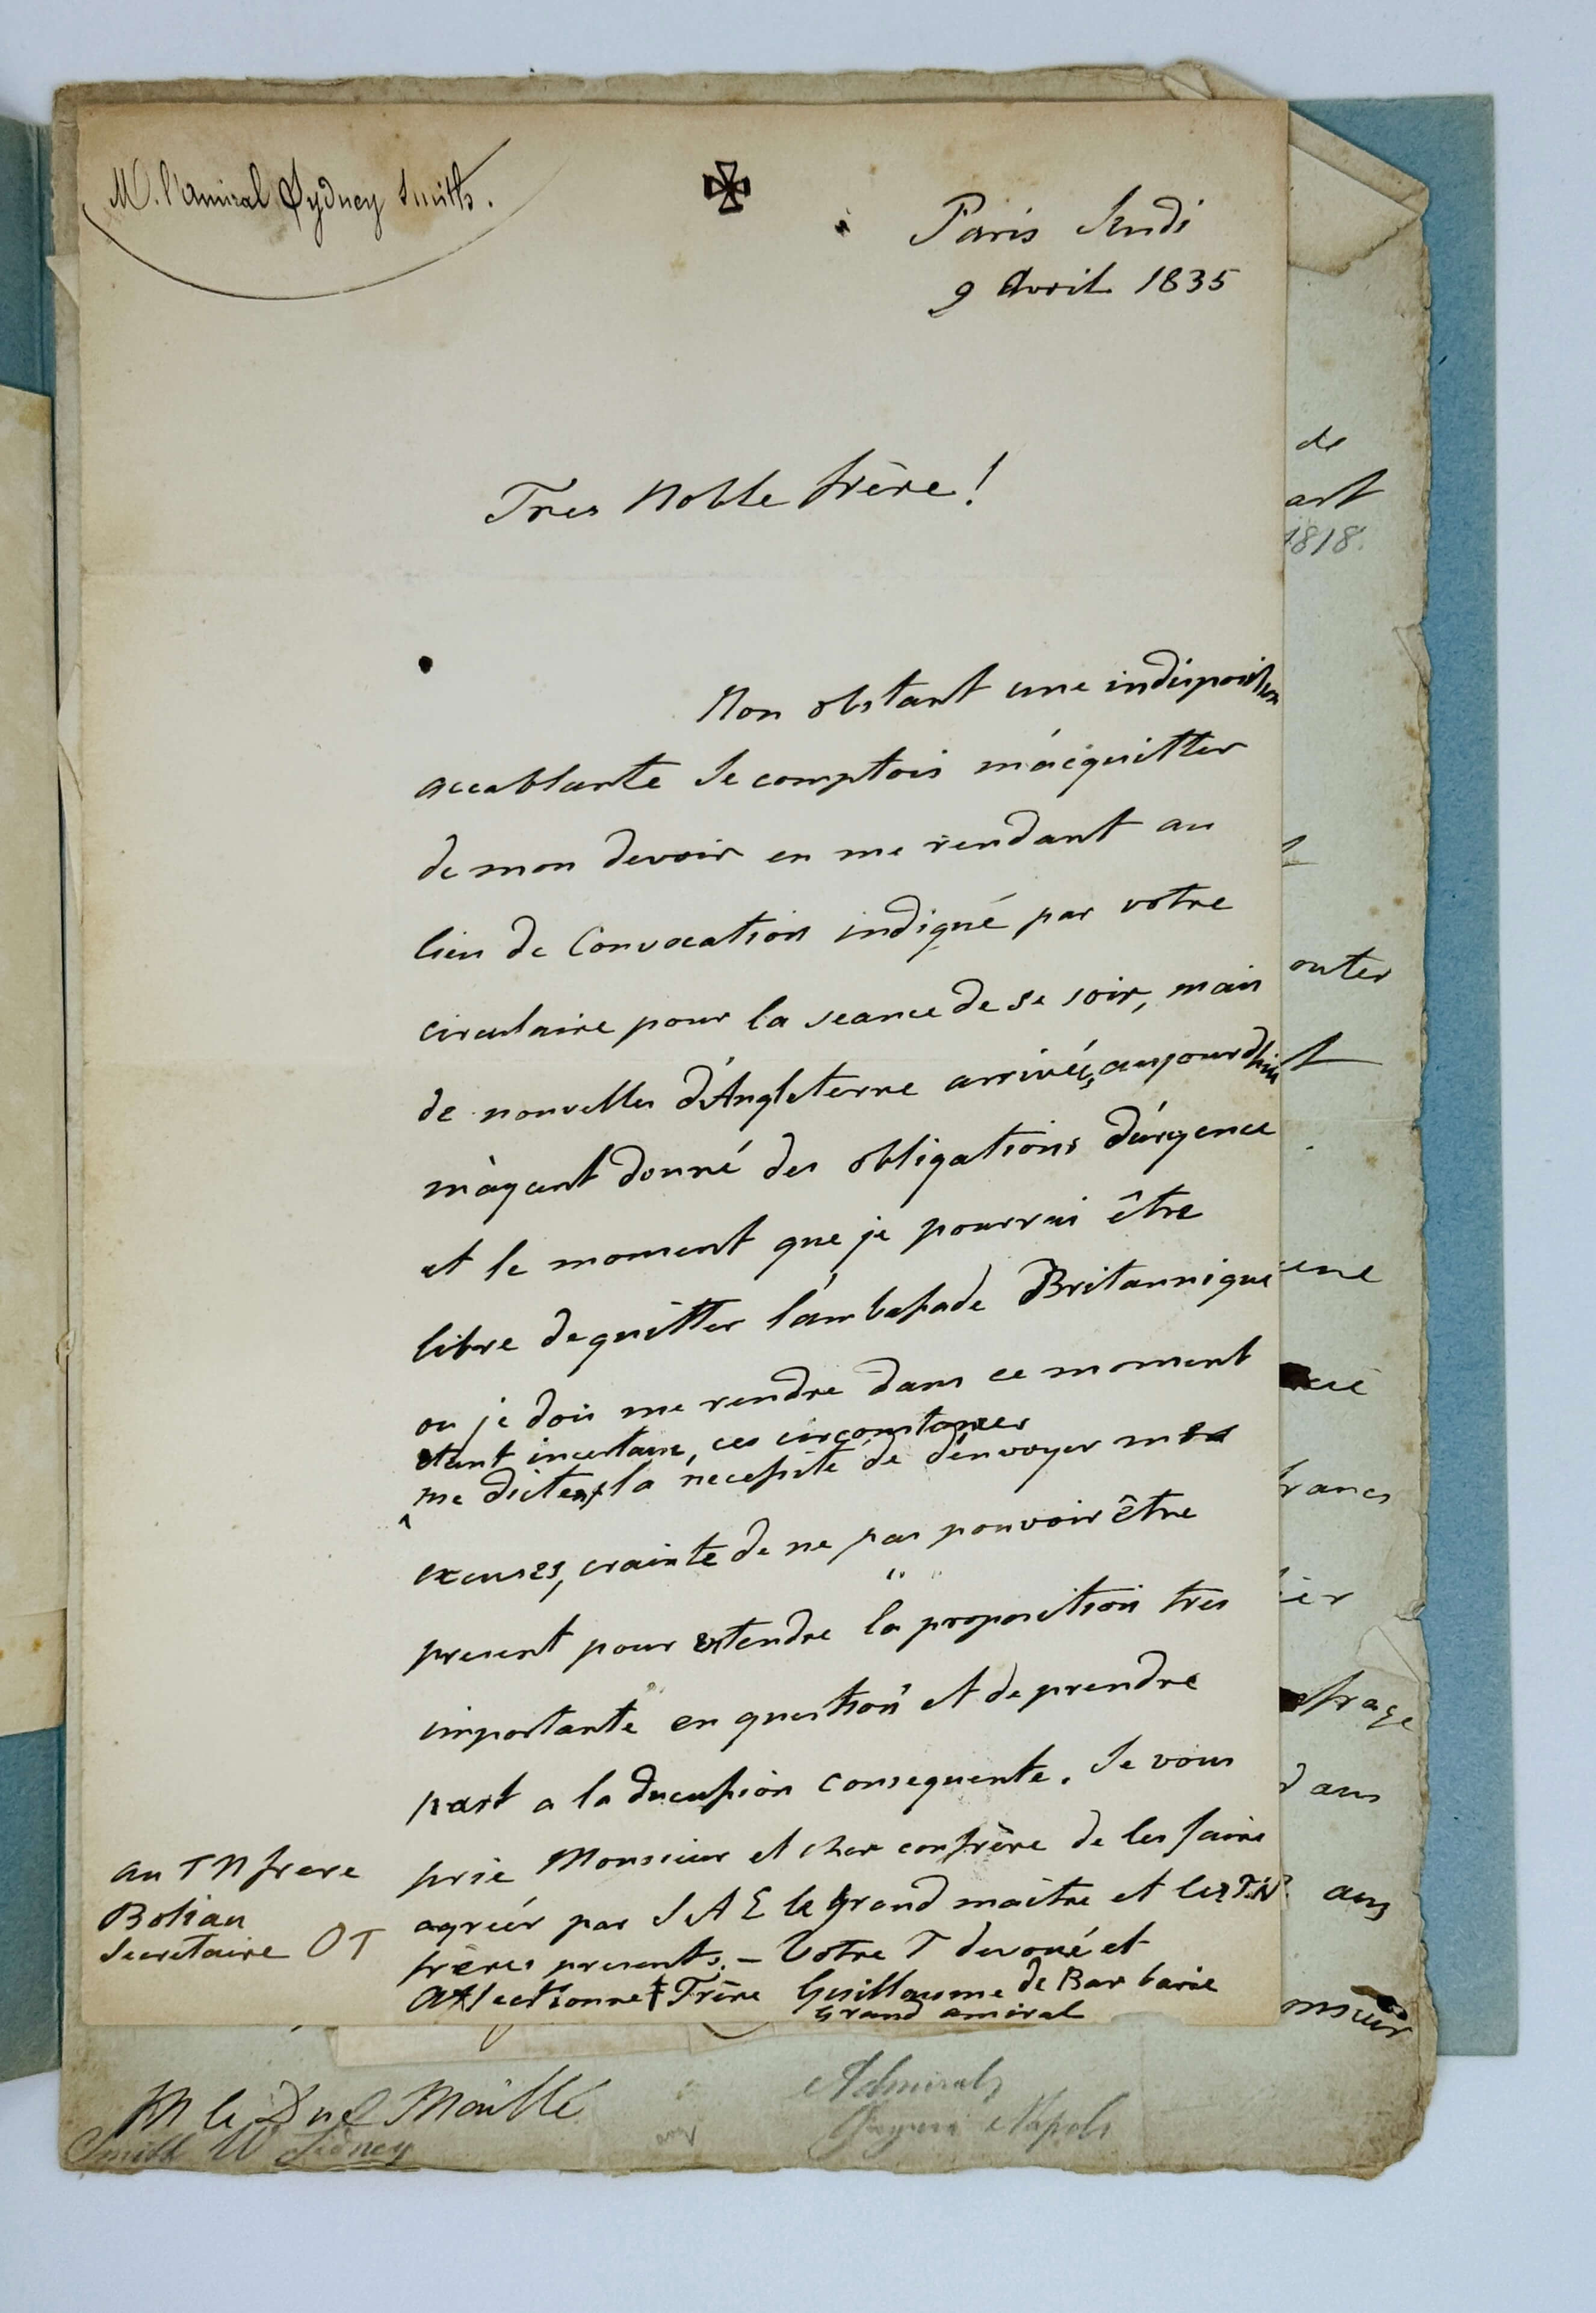 M. l'Amiral Sydney Smith.
Paris Jeudi
9 Avril 1835
Tres Noble frère!
Non obstant une indisposition
accablante Je comptois m'acquitter
de mon devoir en me rendant au
lieu de Convocation indiqué par votre
circulaire pour la seance de se soir, mais
de nouvelles d'Angleterre arrivées aujourd'hui
m'ayant donné des obligations d'urgence
et le moment que je pourrai être
libre de quitter l'ambassade Britannique
ou je dois me rendre dans ce moment
etant incertain, ces circonstances
me dictent la necessité de d'envoyer mes
excuses, crainte de ne pas pouvoir être
present pour entendre la proposition tres
importante en question et de prendre
part a la discussion consequente. Je vous
prie Monsieur et cher confrère de les faire
agréér par S A E le Grand maître et les T.N.
frères presents. – Votre T devoué et
Affectionne † Frère Guillaume de Barbarie
Grand amiral
au T N frere
Secretaire OT
de
art
1818.
outer
t
une
francs
ier
dans
aus
M le Duc Maillé
Smith W Sidney
Admiral